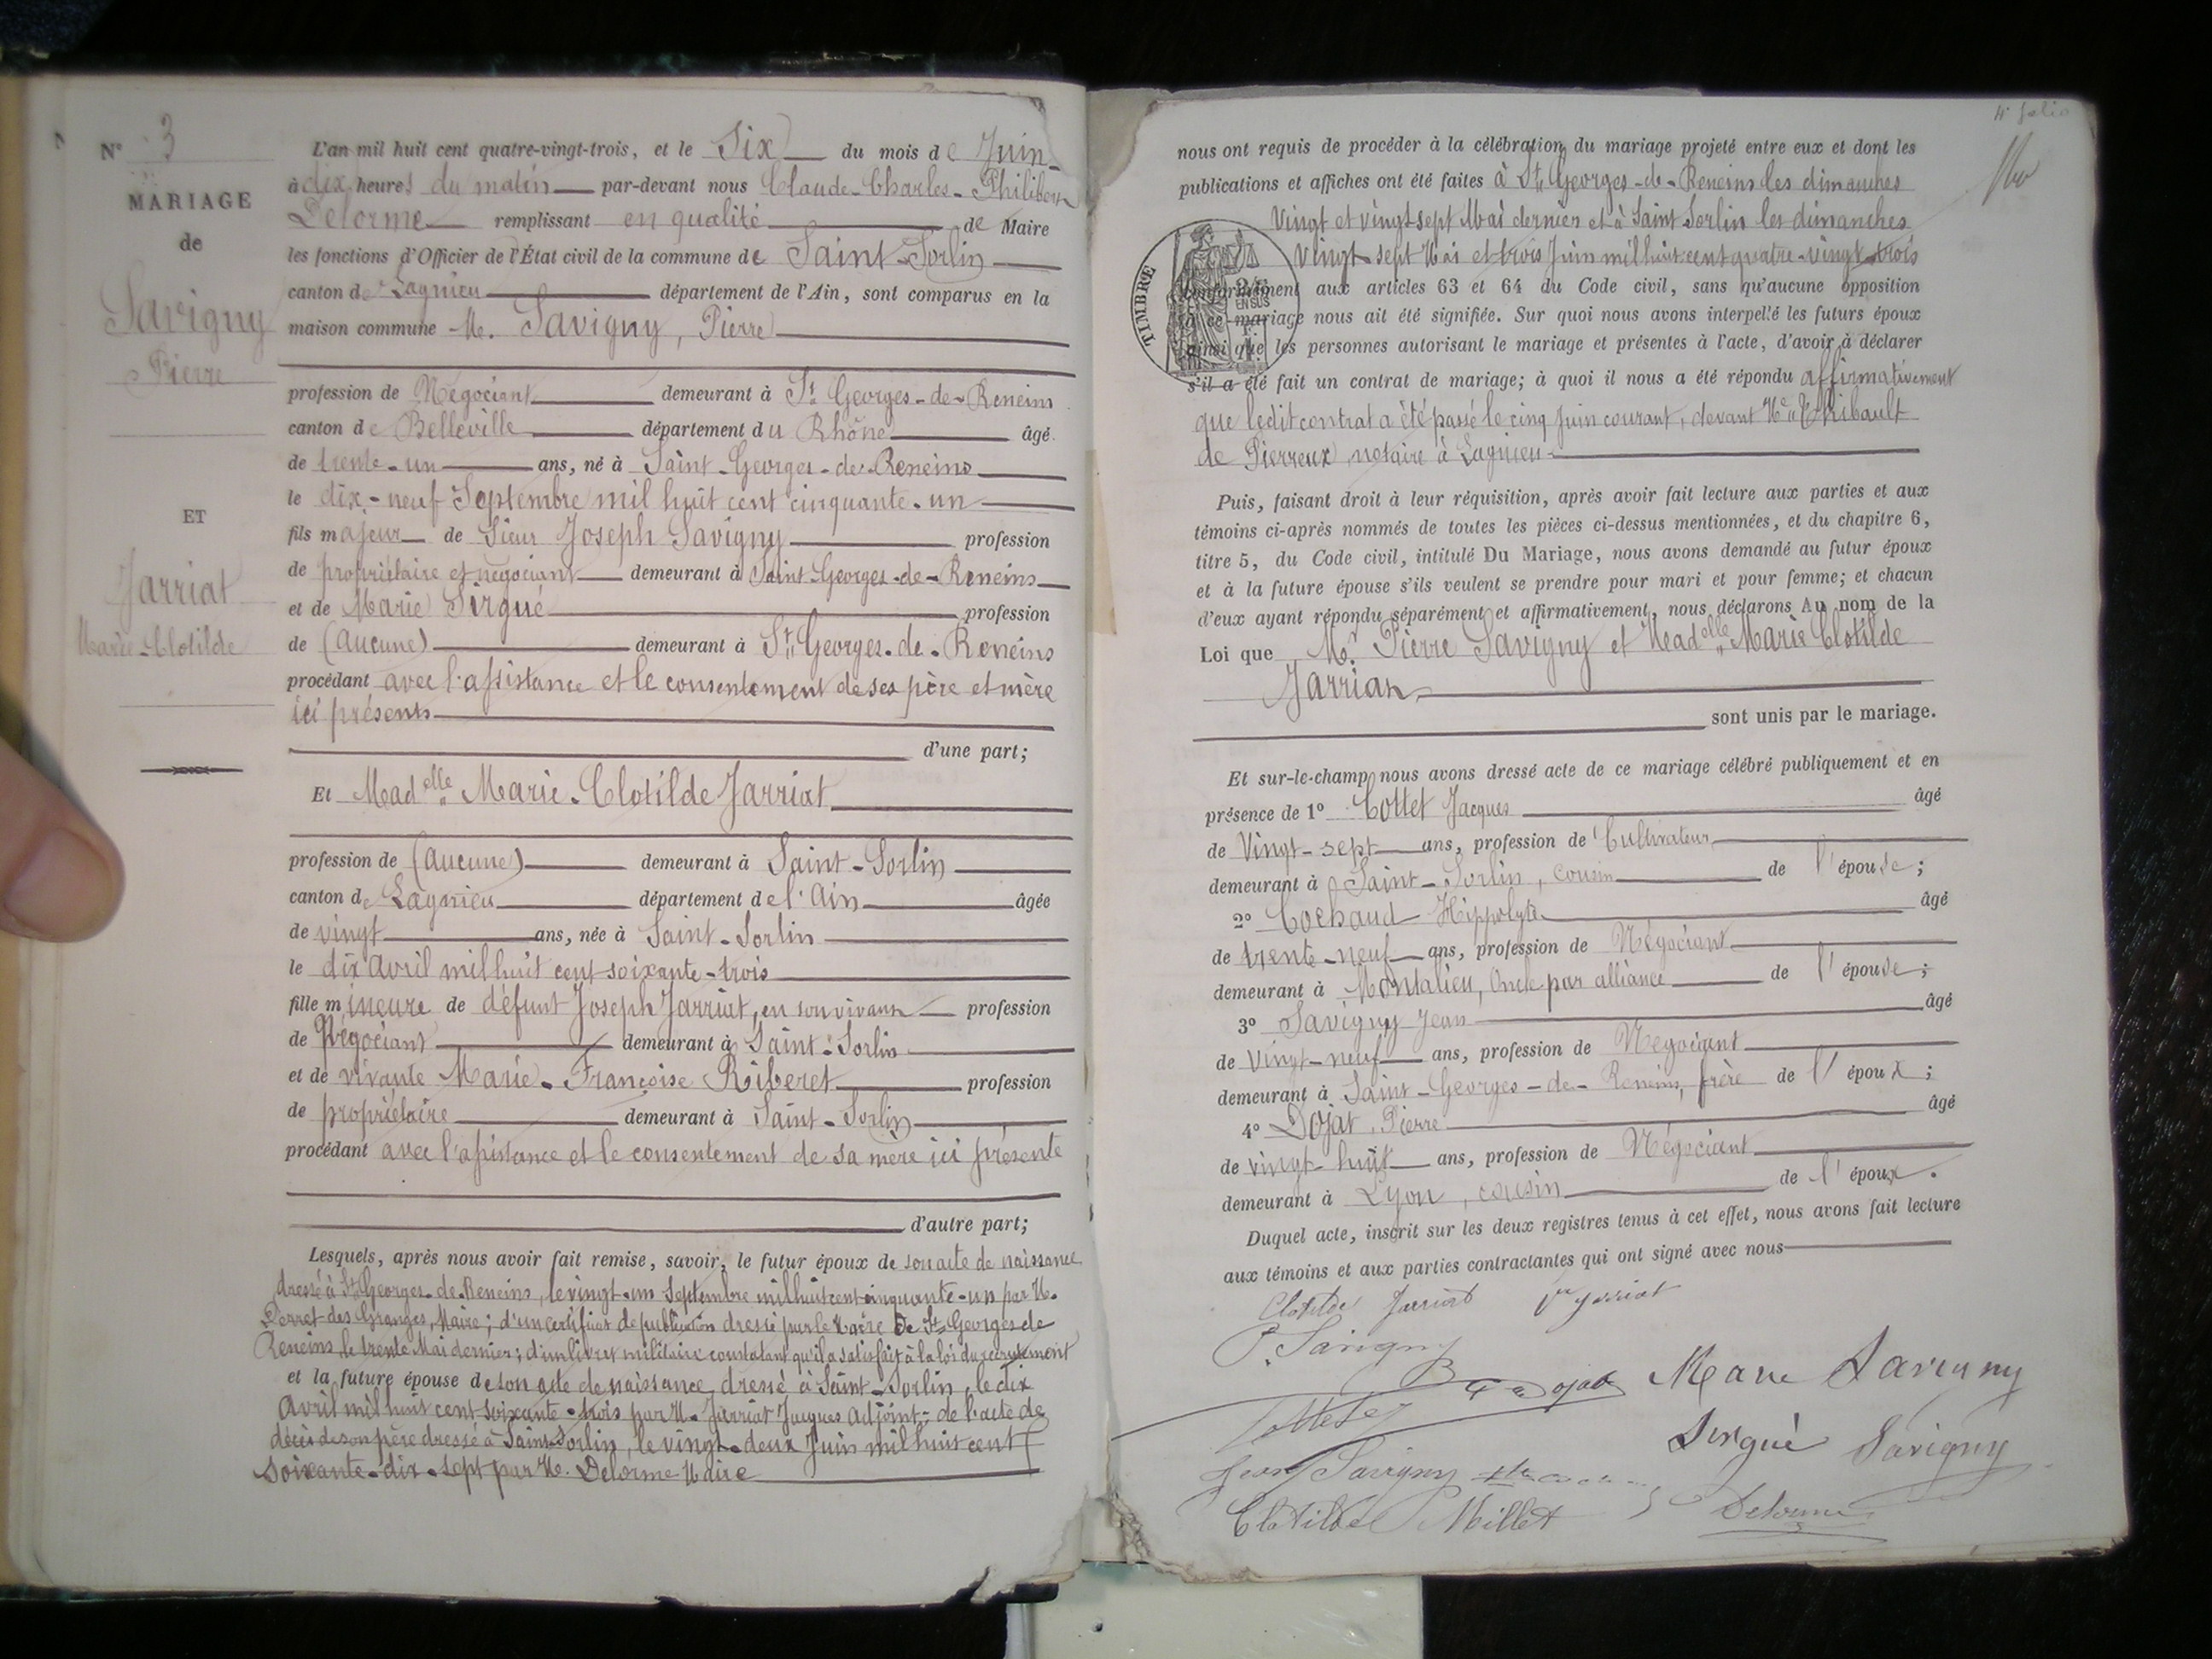 N° 3
MARIAGE
de
Savigny
Pierre
ET
Jarriat
Marie-Clotilde
L'an mil huit cent quatre-vingt-trois, et le Six du mois de Juin
à dix heures du matin par-devant nous Claude-Charles-Philibert
Delorme remplissant en qualité de Maire
les fonctions d'Officier de l'État civil de la commune de Saint-Sorlin
canton de Lagnieu département de l'Ain, sont comparus en la
maison commune M. Savigny, Pierre
profession de Négociant demeurant à St Georges-de-Reneins
canton de Belleville département du Rhône âgé
de trente-un ans, né à Saint-Georges-de-Reneins
le dix-neuf Septembre mil huit cent cinquante-un
fils majeur de Sieur Joseph Savigny profession
de propriétaire et négociant demeurant à Saint-Georges-de-Reneins
et de Marie Sirgué profession
de (aucune) demeurant à St Georges-de-Reneins
procédant avec l'assistance et le consentement de ses père et mère
ici présents
d'une part;
Et Madelle Marie-Clotilde Jarriat
profession de (aucune) demeurant à Saint-Sorlin
canton de Lagnieu département de l'Ain âgée
de vingt ans, née à Saint-Sorlin
le dix Avril mil huit cent soixante-trois
fille mineure de défunt Joseph Jarriat, en son vivant profession
de Négociant demeurant à Saint-Sorlin
et de vivante Marie-Françoise Riberet profession
de propriétaire demeurant à Saint-Sorlin
procédant avec l'assistance et le consentement de sa mère ici présente
d'autre part;
Lesquels, après nous avoir fait remise, savoir, le futur époux de son acte de naissance
dressé à St Georges-de-Reneins, le vingt-un Septembre mil huit cent cinquante-un par M.
des Granges, Maire; d'un certificat de publication dressé par le Maire de St Georges de
Reneins le trente Mai dernier; d'un livret militaire constatant qu'il a satisfait à la loi du recrutement
et la future épouse de son acte de naissance dressé à Saint-Sorlin, le dix
Avril mil huit cent soixante-trois par M. Jarriat Jacques Adjoint; de l'acte de
décès de son père dressé à Saint-Sorlin, le vingt-deux Juin mil huit cent
soixante-dix-sept par M. Delorme Maire
4e folio
nous ont requis de procéder à la célébration du mariage projeté entre eux et dont les
publications et affiches ont été faites à St Georges-de-Reneins les dimanches
Vingt et vingt-sept Mai dernier et à Saint Sorlin les dimanches
Vingt-sept Mai et trois Juin mil huit cent quatre-vingt-trois
TIMBRE
conformément aux articles 63 et 64 du Code civil, sans qu'aucune opposition
à ce mariage nous ait été signifiée. Sur quoi nous avons interpellé les futurs époux
ainsi que les personnes autorisant le mariage et présentes à l'acte, d'avoir à déclarer
s'il a été fait un contrat de mariage; à quoi il nous a été répondu affirmativement
que ledit contrat a été passé le cinq Juin courant, devant Me Thibault
de Pierreux notaire à Lagnieu
Puis, faisant droit à leur réquisition, après avoir fait lecture aux parties et aux
témoins ci-après nommés de toutes les pièces ci-dessus mentionnées, et du chapitre 6,
titre 5, du Code civil, intitulé Du Mariage, nous avons demandé au futur époux
et à la future épouse s'ils veulent se prendre pour mari et pour femme; et chacun
d'eux ayant répondu séparément et affirmativement, nous déclarons Au nom de la
Loi que Mr Pierre Savigny et Madelle Marie Clotilde
Jarriat
sont unis par le mariage.
Et sur-le-champ nous avons dressé acte de ce mariage célébré publiquement et en
présence de 1° Cottet Jacques âgé
de Vingt-sept ans, profession de Cultivateur
demeurant à Saint-Sorlin, cousin de l'épouse;
2° Cochaud Hippolyte âgé
de trente-neuf ans, profession de Négociant
demeurant à Montalieu, Oncle par alliance de l'épouse;
3° Savigny Jean âgé
de Vingt-neuf ans, profession de Négociant
demeurant à Saint-Georges-de-Reneins, frère de l'époux;
4° Dojat Pierre âgé
de vingt-huit ans, profession de Négociant
demeurant à Lyon, cousin de l'époux.
Duquel acte, inscrit sur les deux registres tenus à cet effet, nous avons fait lecture
aux témoins et aux parties contractantes qui ont signé avec nous
Clotilde Jarriat Jarriat
P. Savigny
Dojat Marie Savigny
Sirgué Savigny
Jean Savigny
Clotilde Millet Delorme